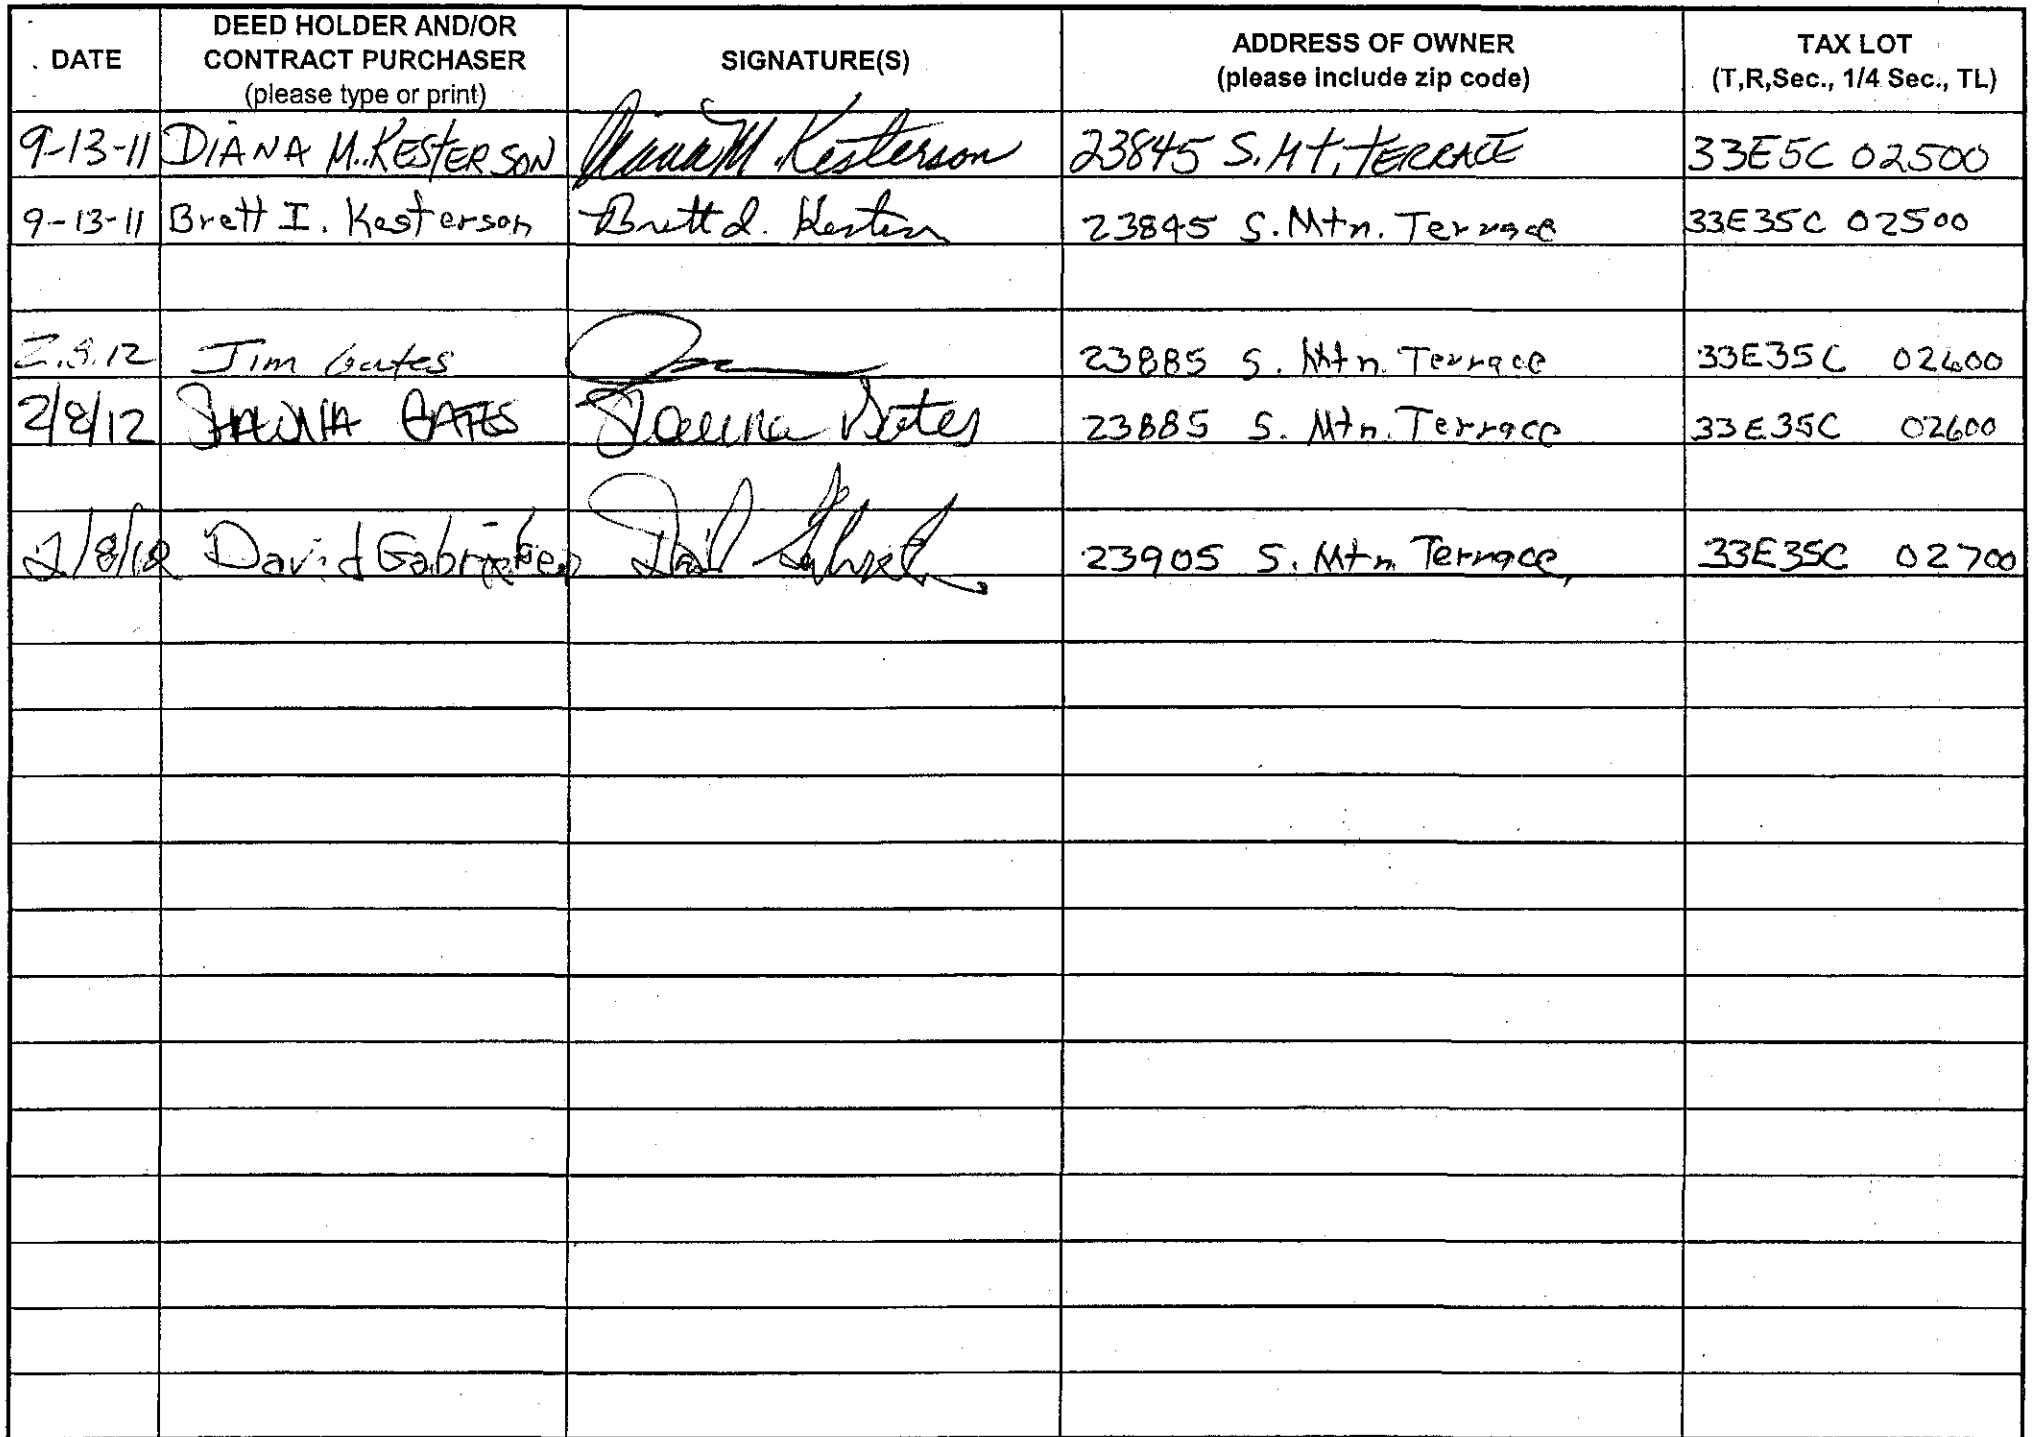 DATE
DEED HOLDER AND/OR
CONTRACT PURCHASER
(please type or print)
SIGNATURE(S)
ADDRESS OF OWNER
(please include zip code)
TAX LOT
(T,R,Sec., 1/4 Sec., TL)
9-13-11 DIANA M. KESTERSON Diana M. Kesterson 23845 S. Mt. TERRACE 33E5C 02500
9-13-11 Brett I. Kesterson Brett I. 23845 S. Mtn. Terrace 33E35C 02500
2.8.12 Jim Gates 23885 S. Mtn. Terrace 33E35C 02600
2/8/12 SHAUNA GATES Shauna Gates 23885 S. Mtn. Terrace 33E35C 02600
2/8/12 David 23905 S. Mtn Terrace, 33E35C 02700